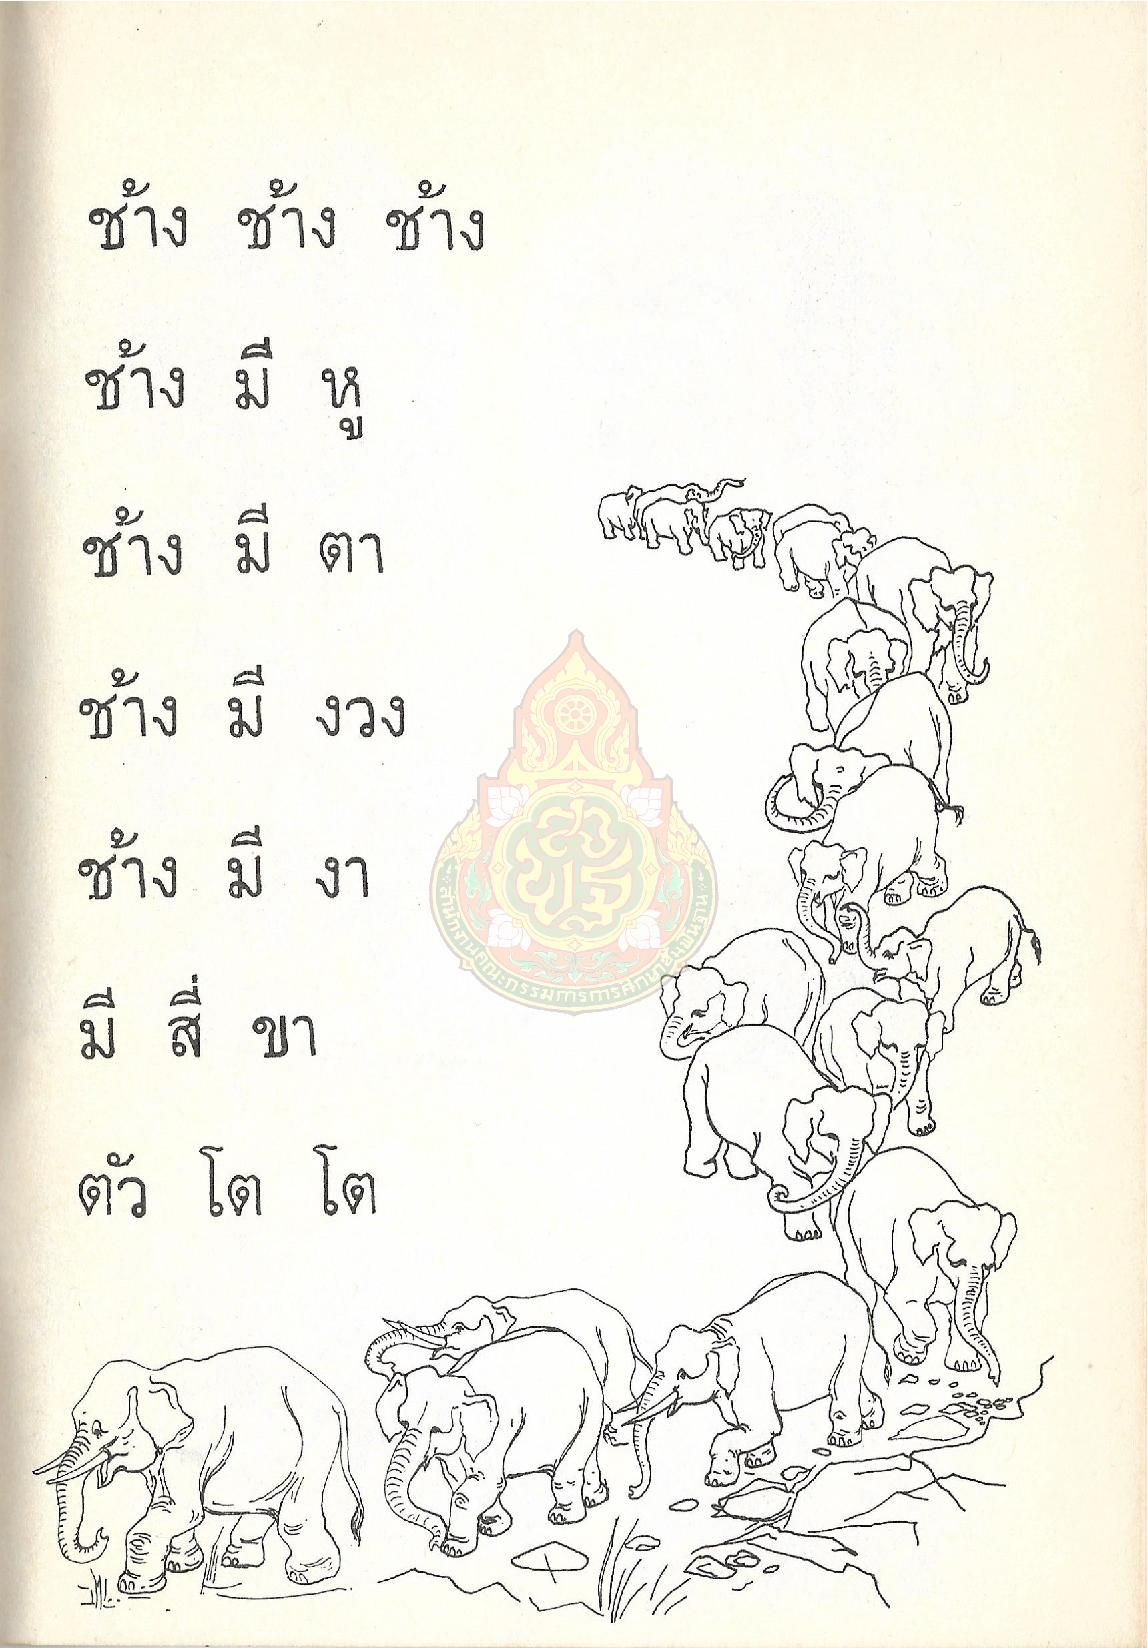 ช้าง ช้าง ช้าง
ช้าง มี หู
ช้าง มี ตา
ช้าง มี งวง
ช้าง มี งา
มี สี่ ขา
ตัว โต โต
สำนักงานคณะกรรมการการศึกษาขั้นพื้นฐาน